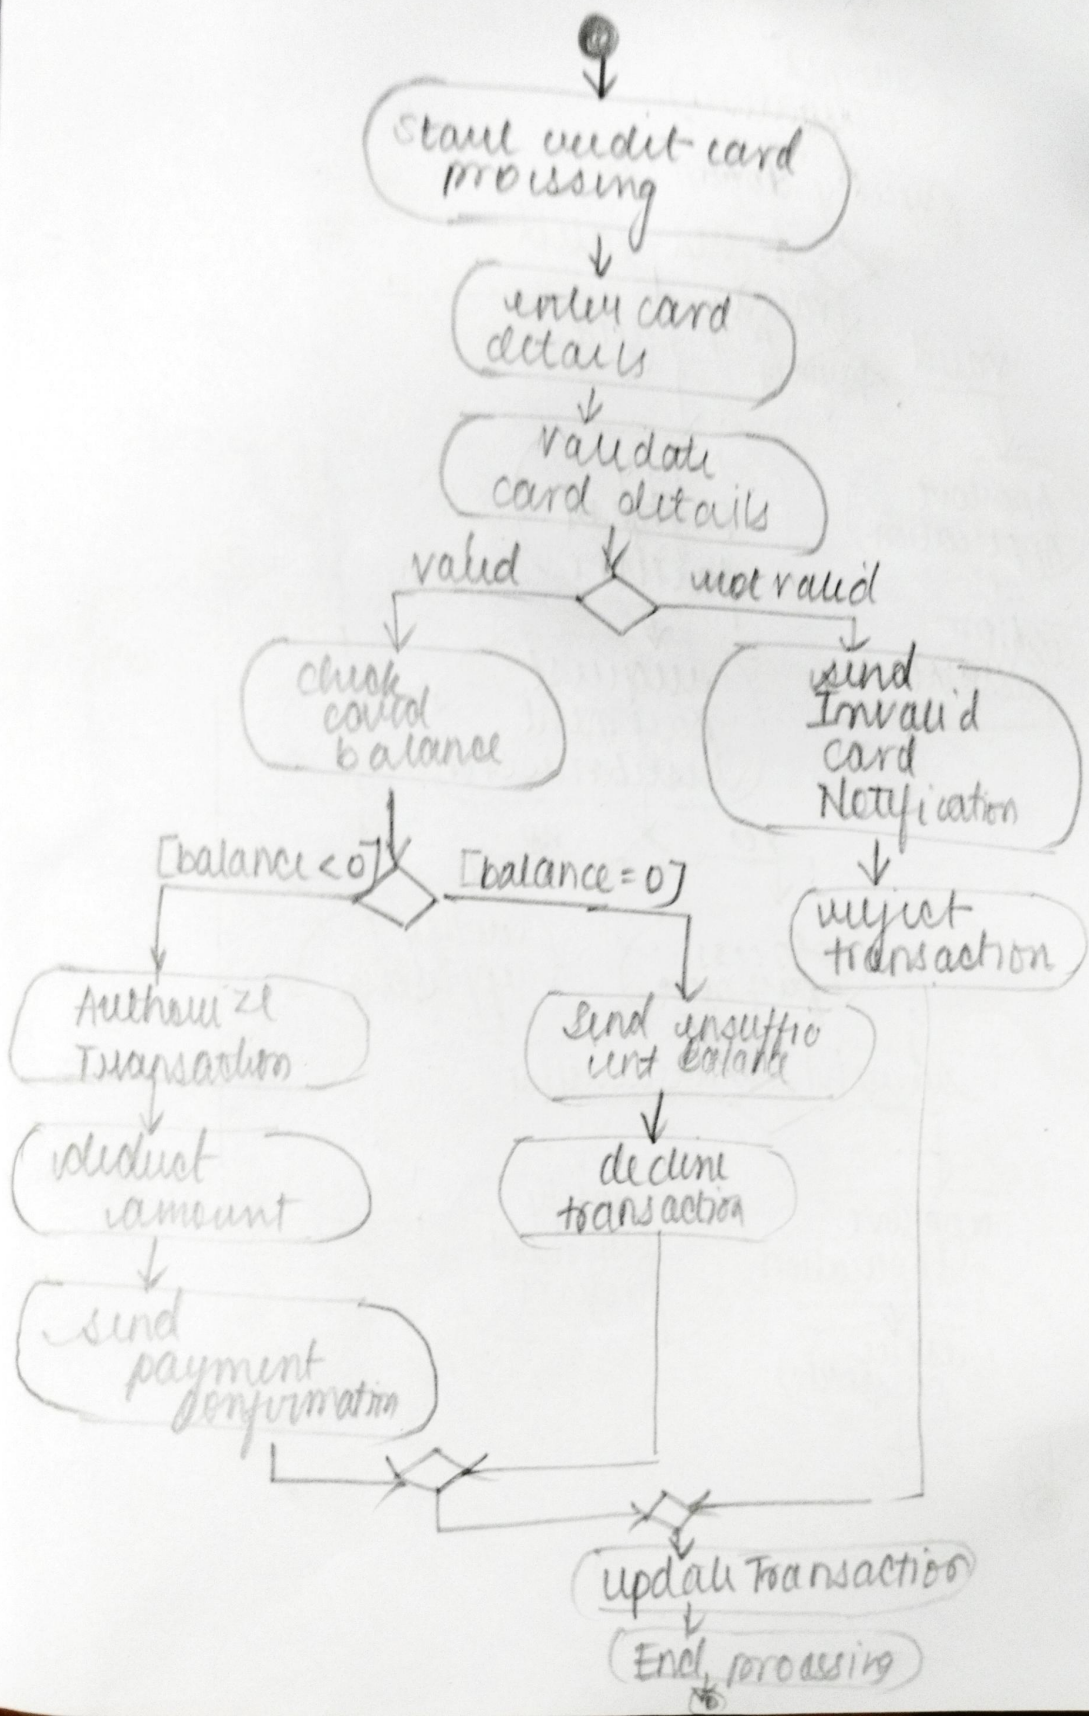 Start credit card
processing
enter card
details
validate
card details
valid
not valid
check
card
balance
send
Invalid
card
Notification
[balance<0]
[balance=0]
reject
transaction
Authorize
Transaction
Send insuffic
ient balance
deduct
amount
decline
transaction
send
payment
confirmation
update Transaction
End processing